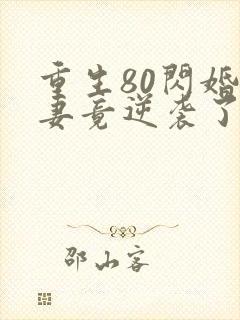 重生80閃婚
妻竟逆袭了
邵山客